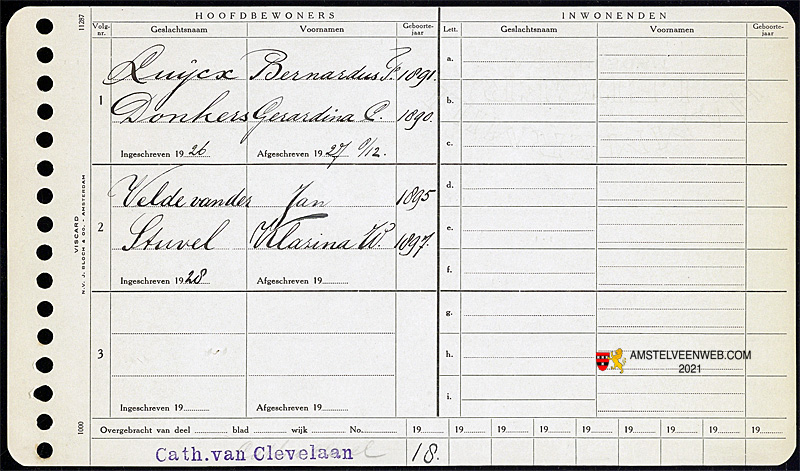 HOOFDBEWONERS INWONENDEN
Volg-nr. Geslachtsnaam Voornamen Geboorte-jaar Lett. Geslachtsnaam Voornamen Geboorte-jaar
11287
Luijcx Bernardus F. 1891. a.
1 b.
Donkers Gerardina C. 1890.
c.
Ingeschreven 1926 Afgeschreven 1927 9/12.
Velde vander Jan 1895 d.
2 e.
Stuvel Klasina W. 1897.
f.
Ingeschreven 1928 Afgeschreven 19
g.
3 h.
i.
Ingeschreven 19 Afgeschreven 19
VISCARD
N.V. J. BLOCH & CO. AMSTERDAM
1000
AMSTELVEENWEB.COM
2021
Overgebracht van deel blad wijk No. 19 19 19 19 19 19 19 19 19
Cath.van Clevelaan 18.